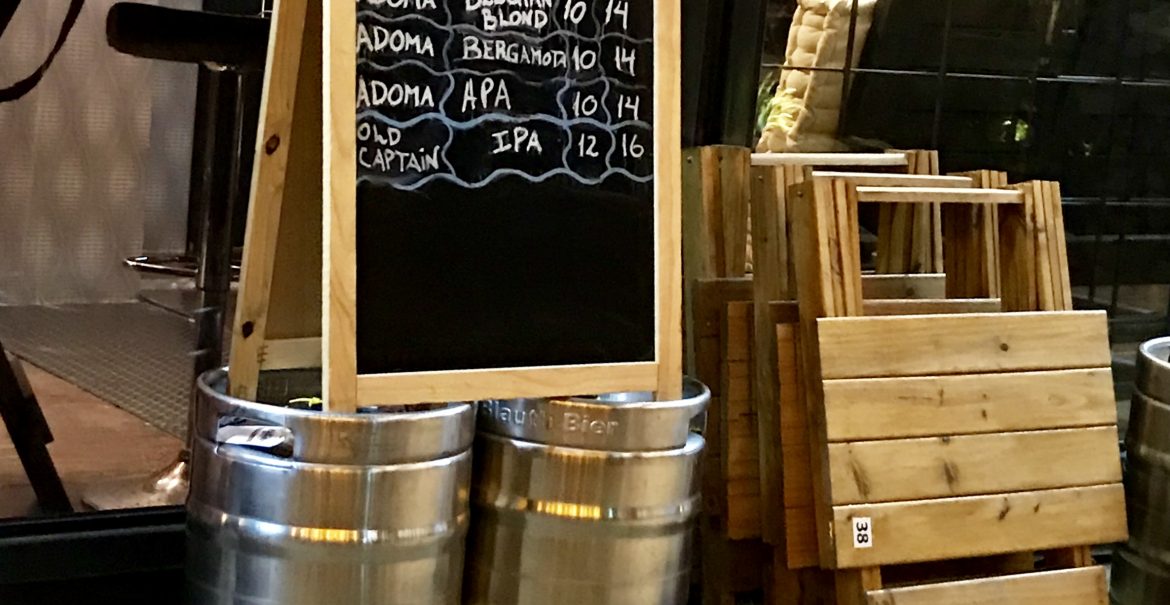 ADOMA BELGIAN BLOND 10 14
ADOMA BERGAMOTA 10 14
ADOMA APA 10 14
OLD CAPTAIN IPA 12 16
Bier
38